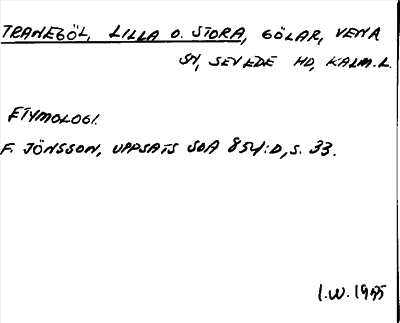 TRANEGÖL, LILLA O. STORA, GÖLAR, VENA
SN, SEVEDE HD, KALM.L.
ETYMOLOGI.
F. JÖNSSON, UPPSATS SOA 854:D, S. 33.
I.W. 1955